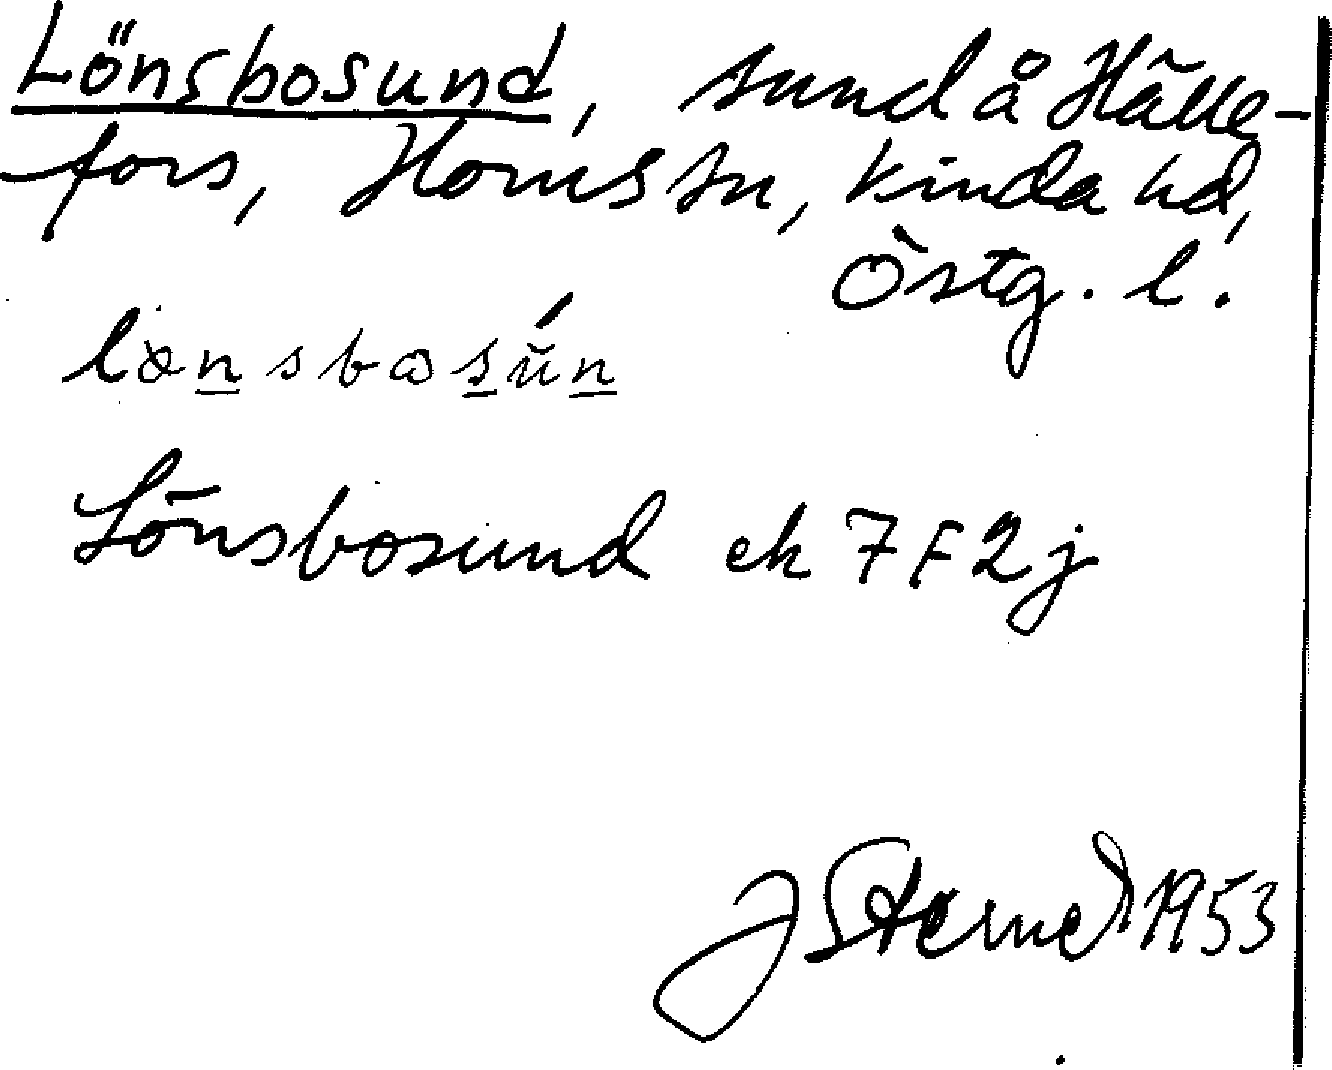 Lönsbosund, sund å Hälle-
fors, Horns sn, Kinda hd,
Östg. l.
lönsbosún
Lönsbosund ek 7F2j
J 1953